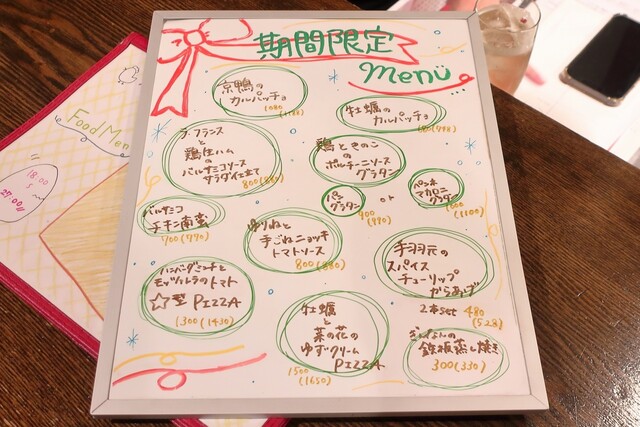 期間限定
menü
京鴨の
カルパッチョ
牡蠣の
カルパッチョ
ラ・フランス
と
鶏生ハム
の
バルサミコソース
サラダ仕立て
800(880)
鶏ときのこ
の
ポルチーニソース
グラタン
パン
グラタン
900
(990)
or
ペンネ
マカロニ
グラタン
1000
(1100)
バルサミコ
チキン南蛮
700(770)
ゆりねと
手ごねニョッキ
トマトソース
800(880)
手羽元の
スパイス
チューリップ
からあげ
2本set 480
(528)
モッツァレラのトマト
☆型 PIZZA
1300(1430)
牡蠣
と
菜の花の
ゆずクリーム
PIZZA
1500
(1650)
ぎんなんの
鉄板蒸し焼き
300(330)
Food Men
18:00